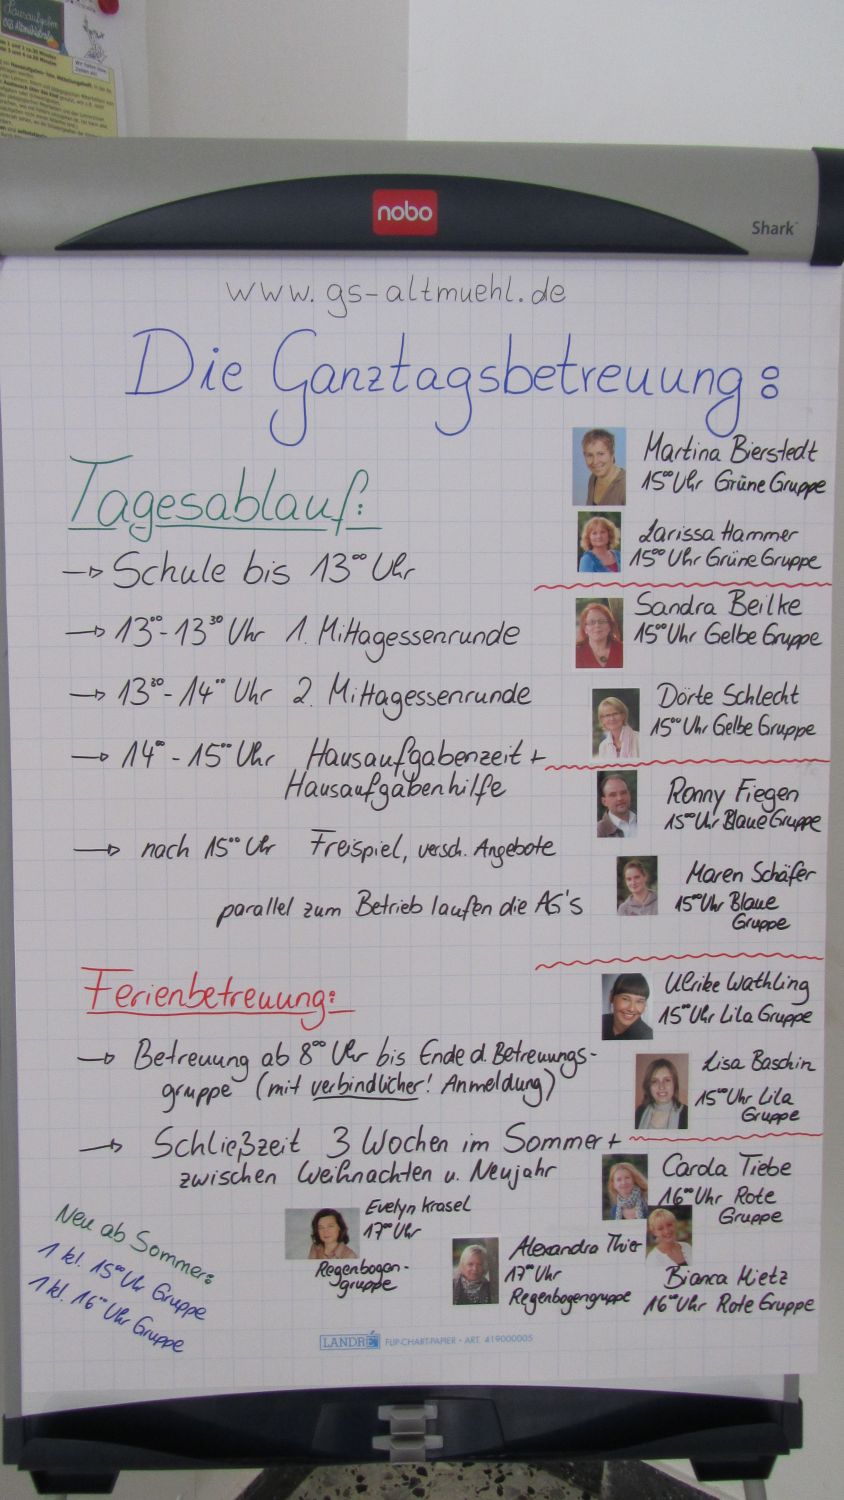 nobo
Shark
www.gs-altmuehl.de
Die Ganztagsbetreuung:
Tagesablauf:
→ Schule bis 13⁰⁰ Uhr
→ 13⁰⁰-13³⁰ Uhr 1. Mittagessenrunde
→ 13³⁰-14⁰⁰ Uhr 2. Mittagessenrunde
→ 14⁰⁰-15⁰⁰ Uhr Hausaufgabenzeit +
Hausaufgabenhilfe
→ nach 15⁰⁰ Uhr Freispiel, versch. Angebote
parallel zum Betrieb laufen die AG's
Ferienbetreuung:
→ Betreuung ab 8⁰⁰ Uhr bis Ende d. Betreuungs-
gruppe (mit verbindlicher! Anmeldung)
→ Schließzeit 3 Wochen im Sommer +
zwischen Weihnachten u. Neujahr
Neu ab Sommer:
1 kl. 15⁰⁰ Uhr Gruppe
1 kl. 16⁰⁰ Uhr Gruppe
Martina Bierstedt
15⁰⁰ Uhr Grüne Gruppe
Larissa Hammer
15⁰⁰ Uhr Grüne Gruppe
Sandra Beilke
15⁰⁰ Uhr Gelbe Gruppe
Dörte Schlecht
15⁰⁰ Uhr Gelbe Gruppe
Ronny Fiegen
15⁰⁰ Uhr Blaue Gruppe
Maren Schäfer
15⁰⁰ Uhr Blaue
Gruppe
Ulrike Wathling
15⁰⁰ Uhr Lila Gruppe
Lisa Baschin
15⁰⁰ Uhr Lila
Gruppe
Carola Tiebe
16⁰⁰ Uhr Rote
Gruppe
Bianca Mietz
16⁰⁰ Uhr Rote Gruppe
Evelyn Krasel
17⁰⁰ Uhr
Regenbogen-
gruppe
Alexandra Thier
17⁰⁰ Uhr
Regenbogengruppe
LANDRÉ FLIP-CHART-PAPIER · ART. 419000005